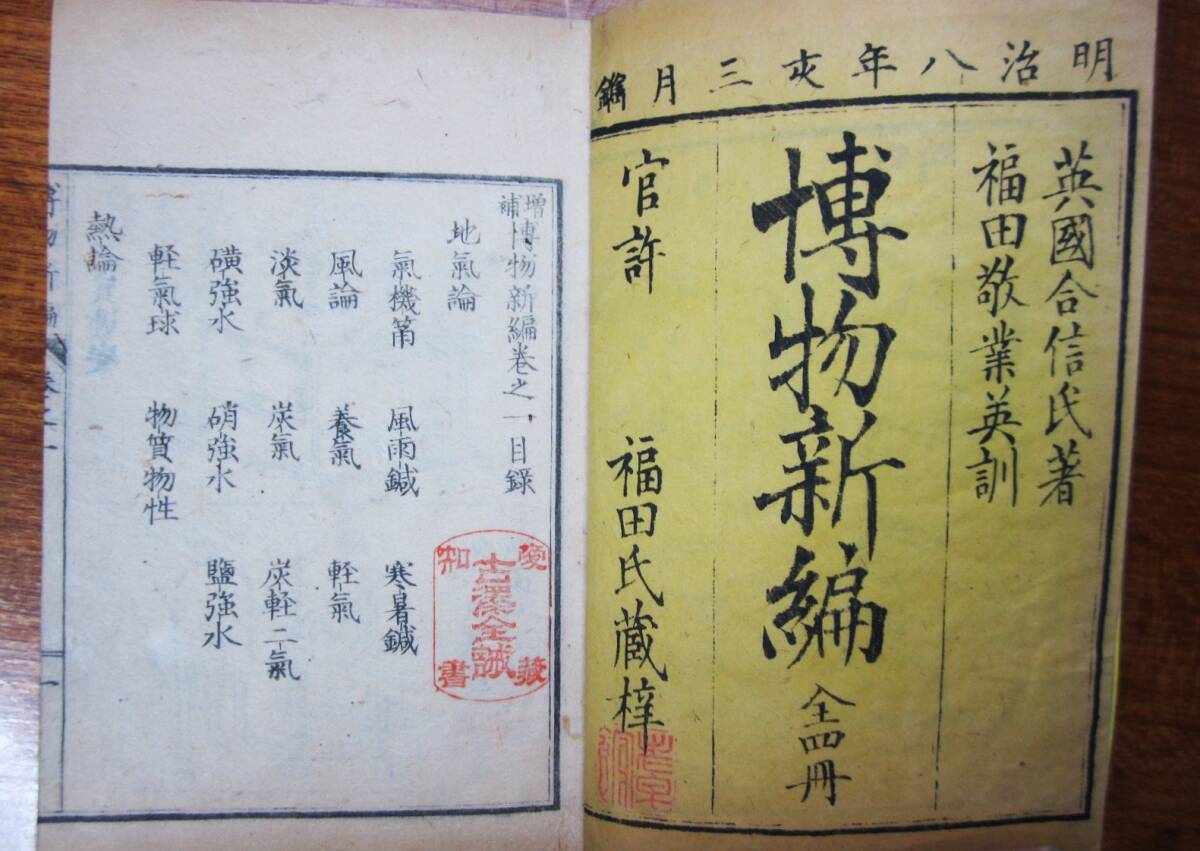 明治八年亥三月鐫
英國合信氏著
福田敬業英訓
博物新編
全四冊
官許
福田氏蔵梓
増補博物新編巻之一目錄
地氣論
氣機筩 風雨鍼 寒暑鍼
風論 養氣 軽氣
淡氣 炭氣 炭軽二氣
磺強水 硝強水 鹽強水
軽氣球 物質物性
熱論
愛知
古溪全誠
藏書